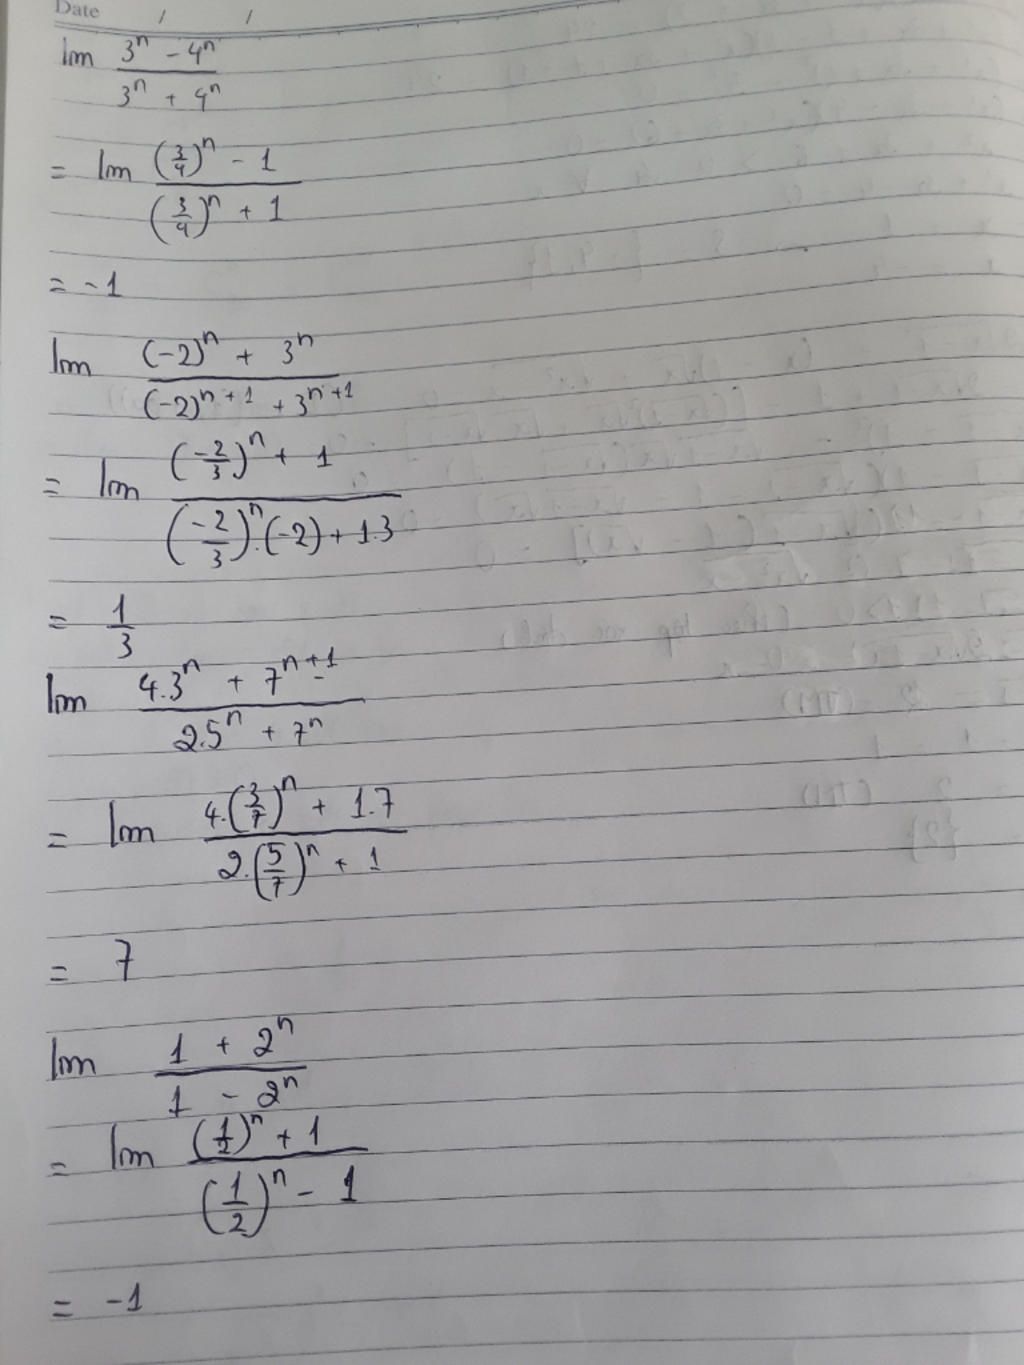 Date / /
lim (3^n - 4^n)/(3^n + 4^n)
= lim ((3/4)^n - 1)/((3/4)^n + 1)
= -1
lim ((-2)^n + 3^n)/((-2)^(n+1) + 3^(n+1))
= lim ((-2/3)^n + 1)/((-2/3)^n.(-2) + 1.3)
= 1/3
lim (4.3^n + 7^(n+1))/(2.5^n + 7^n)
= lim (4.(3/7)^n + 1.7)/(2.(5/7)^n + 1)
= 7
lim (1 + 2^n)/(1 - 2^n)
= lim ((1/2)^n + 1)/((1/2)^n - 1)
= -1